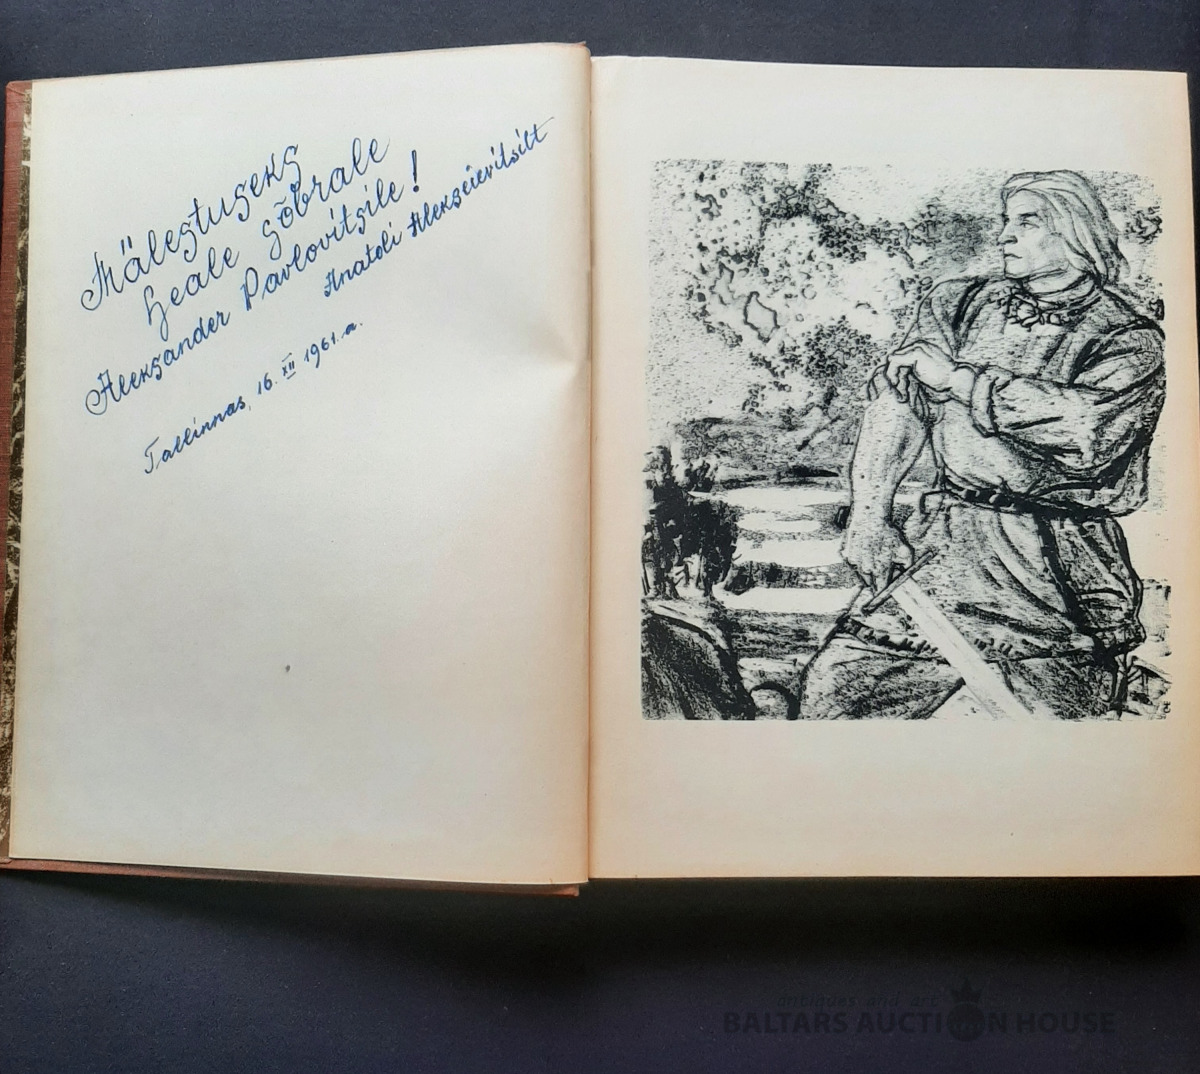 Mälestuseks
heale sõbrale
Aleksander Pavlovitšile!
Anatoli Alekseievitšilt
Tallinnas, 16. XII 1961. a.
antiques and art
BALTARS AUCTION HOUSE